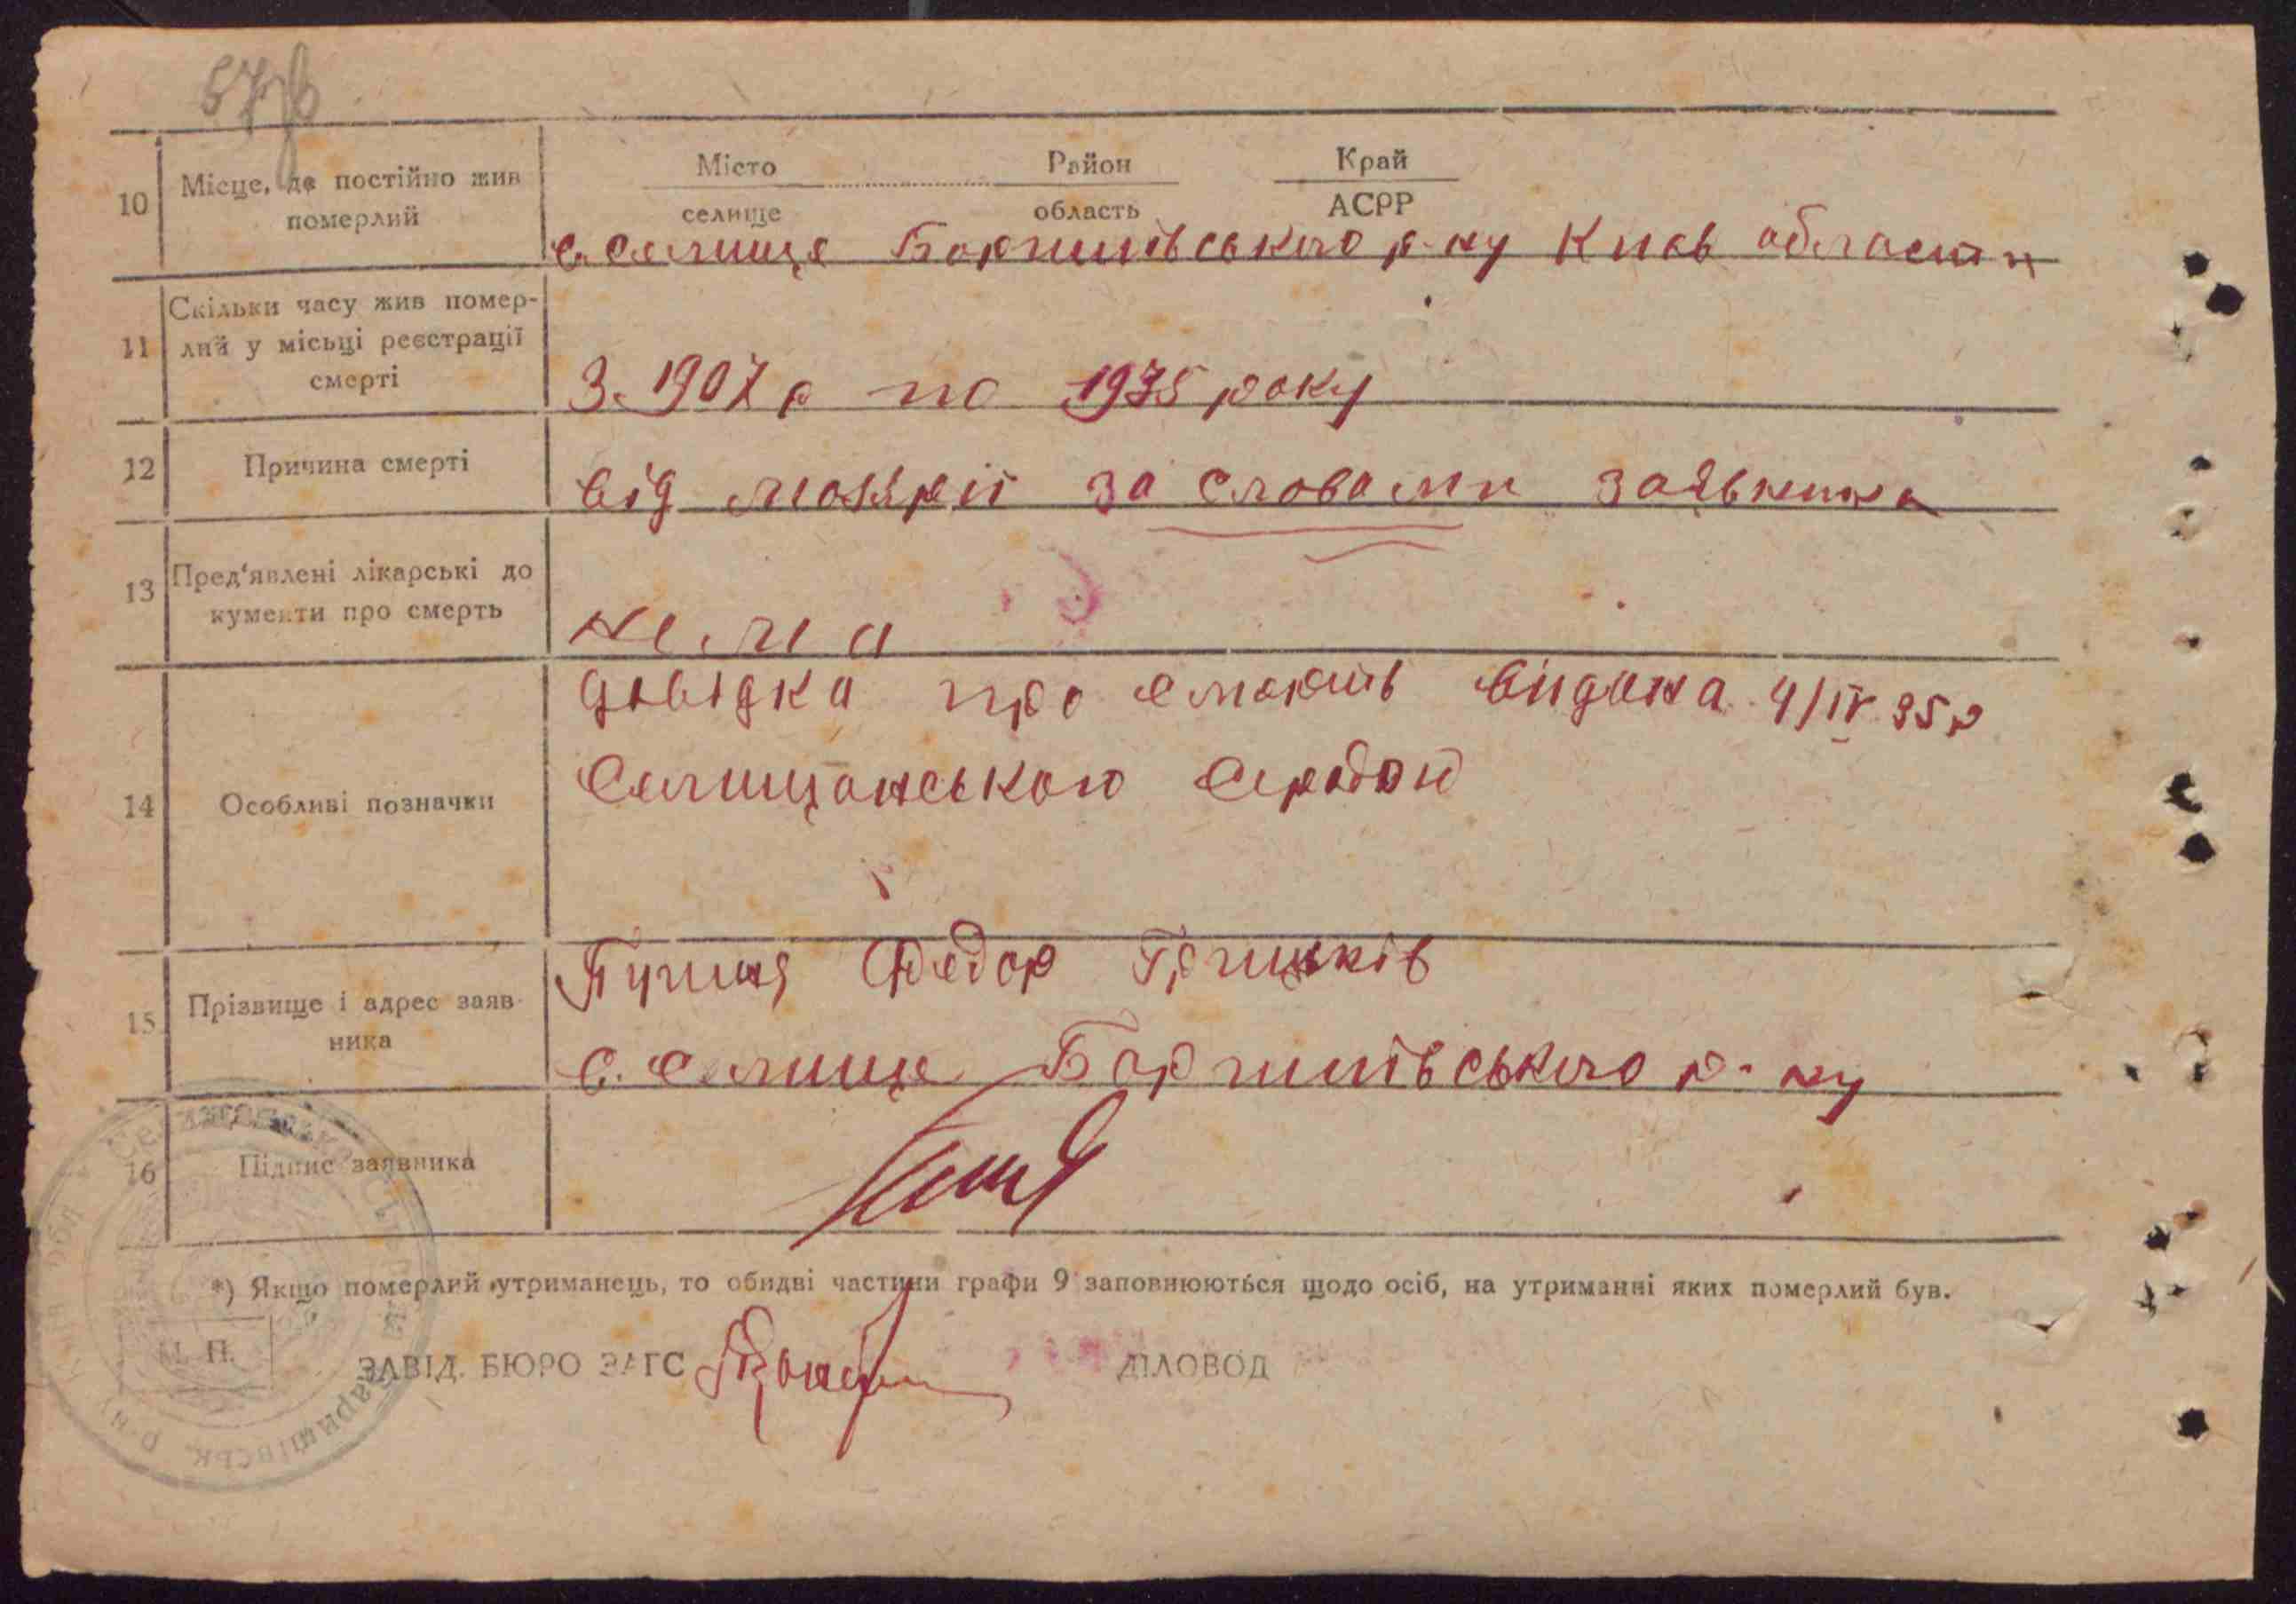 57зв
10 Місце, де постійно жив померлий
Місто Район Край
селище область АСРР
с. Селище Баришівського р-ну Київ області
11 Скільки часу жив помер-
лий у місьці реєстрації
смерті
З 1907 р по 1935 року
12 Причина смерті
від малярії за словами заявника
13 Пред'явлені лікарські до
кументи про смерть
нема
довідка про смерть видана 4/IV 35 р
14 Особливі позначки
Селищанською с/радою
15 Прізвище і адрес заяв-
ника
Федор Грицьків
с. Селище Баришівського р-ну
16 Підпис заявника
*) Якщо померлий утриманець, то обидві частини графи 9 заповнюються щодо осіб, на утриманні яких померлий був.
М. П.
ЗАВІД. БЮРО ЗАГС ДІЛОВОД
Баришівськ. р-ну